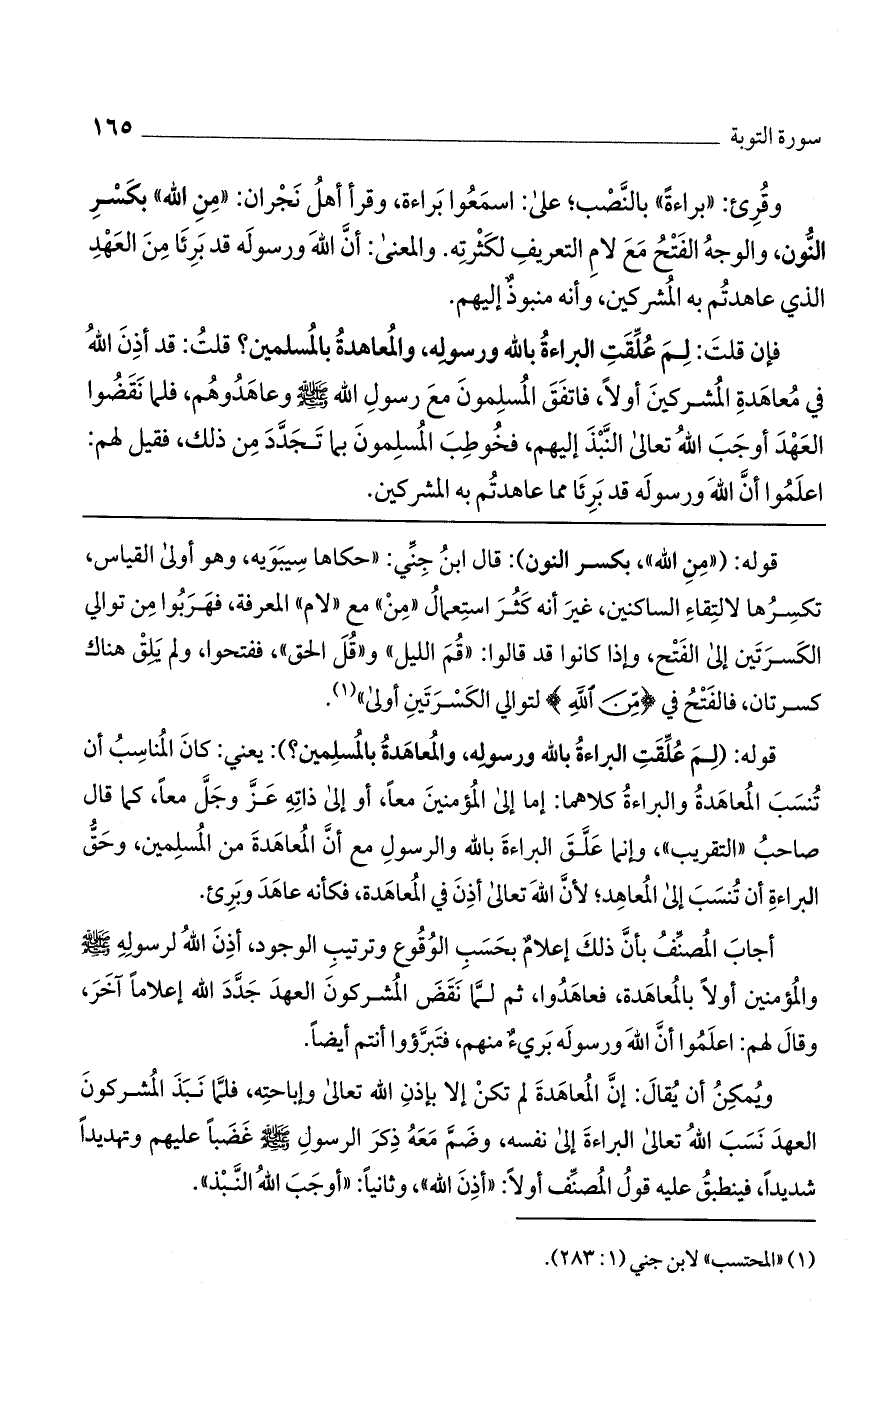 سورة التوبة ١٦٥
وقُرِئ: «براءةً» بالنَّصْب؛ علىٰ: اسمَعُوا بَراءة، وقرأ أهلُ نَجْران: «مِنِ الله» بكَسْرِ
النُّون، والوجهُ الفَتْحُ مَعَ لامِ التعريفِ لكَثْرتِه. والمعنىٰ: أنَّ اللهَ ورسولَه قد بَرِئَا مِنَ العَهْدِ
الذي عاهدتُم به المُشركين، وأنه منبوذٌ إليهم.
فإن قلتَ: لِـمَ عُلِّقَتِ البراءةُ بالله ورسولِه، والمُعاهدةُ بالمُسلمين؟ قلتُ: قد أذِنَ اللهُ
في مُعاهَدةِ المُشـركينَ أولاً، فاتفَقَ المُسلِمونَ معَ رسولِ الله ﷺ وعاهَدُوهُم، فلما نَقَضُوا
العَهْدَ أوجَبَ اللهُ تعالىٰ النَّبْذَ إليهم، فخُوطِبَ المُسلمونَ بما تَـجَدَّدَ مِن ذلك، فقيل لهم:
اعلَمُوا أنَّ اللهَ ورسولَه قد بَرِئَا مما عاهدتُم به المشركين.
قوله: («مِنِ الله»، بكسـر النون): قال ابنُ جِنِّي: «حكاها سِيبَوَيه، وهو أولىٰ القياس،
تكسِـرُها لالتِقاءِ الساكنين، غيرَ أنه كَثُـرَ استِعمالُ «مِنْ» مع «لام» المعرفة، فهَـرَبُوا مِن توالي
الكَسـرَتَين إلىٰ الفَتْح، وإذا كانوا قد قالوا: «قُمَ الليل» و«قُلَ الحق»، ففتحوا، ولم يَلِقْ هناك
كسـرتان، فالفَتْحُ في ﴿مِّنَ ٱللَّهِ﴾ لتوالي الكَسْـرَتَينِ أولىٰ»(١).
قوله: (لِـمَ عُلِّقَتِ البراءةُ بالله ورسولِه، والمُعاهَدةُ بالمُسلِمين؟): يعني: كانَ المُناسِبُ أن
تُنسَبَ المُعاهَدةُ والبراءةُ كلاهما: إما إلىٰ المُؤمنينَ معاً، أو إلىٰ ذاتِهِ عَـزَّ وجَلَّ معاً، كما قال
صاحبُ «التقريب»، وإنما عَلَّـقَ البراءةَ بالله والرسولِ مع أنَّ المُعاهَدةَ من المُسلِمين، وحَقُّ
البراءةِ أن تُنسَبَ إلىٰ المُعاهِد؛ لأنَّ اللهَ تعالىٰ أذِنَ في المُعاهَدة، فكأنه عاهَدَ وبَرِئ.
أجابَ المُصنِّفُ بأنَّ ذلكَ إعلامٌ بحَسَبِ الوُقُوع وترتيبِ الوجود، أذِنَ اللهُ لرسولِهِ ﷺ
والمُؤمنين أولاً بالمُعاهَدة، فعاهَدُوا، ثم لـمَّا نَقَضَ المُشـركونَ العهدَ جَدَّدَ الله إعلاماً آخَرَ،
وقالَ لهم: اعلَمُوا أنَّ اللهَ ورسولَه بَريءٌ منهم، فتَبرَّؤوا أنتم أيضاً.
ويُمكِنُ أن يُقالَ: إنَّ المُعاهَدةَ لم تكنْ إلا بإذنِ الله تعالىٰ وإباحتِه، فلمَّا نَبَذَ المُشـركونَ
العهدَ نَسَبَ اللهُ تعالىٰ البراءةَ إلىٰ نفسه، وضَمَّ مَعَهُ ذِكرَ الرسولِ ﷺ غَضَباً عليهم وتهديداً
شديداً، فينطبقُ عليه قولُ المُصنِّف أولاً: «أذِنَ الله»، وثانياً: «أوجَبَ اللهُ النَّبْذ».
(١) «المحتسب» لابن جني (١: ٢٨٣).